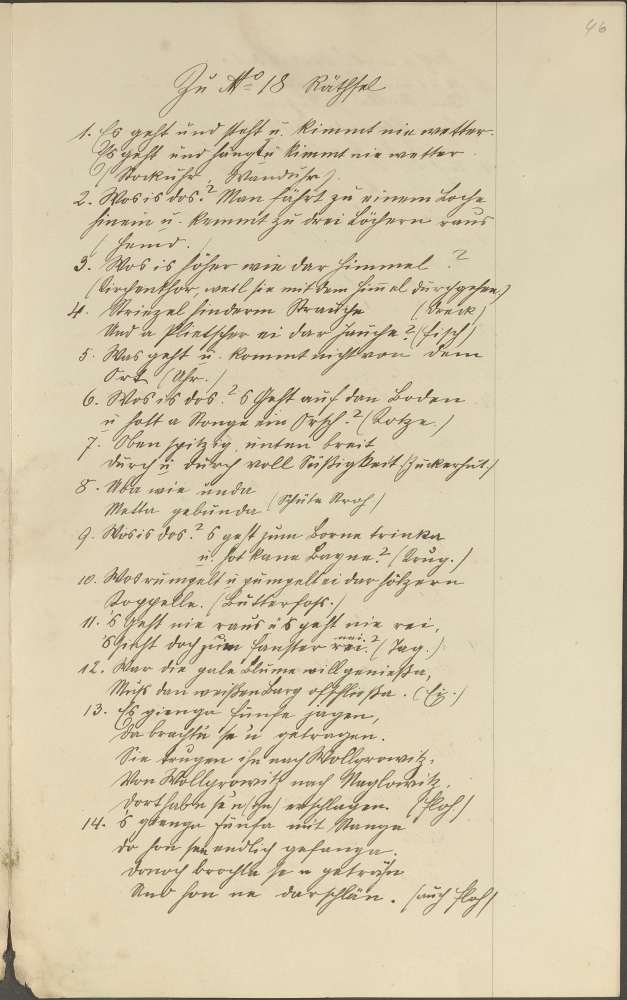 46
Zu No 18 Räthsel
1. Es geht und steht u. kimmt nie wetter.
Es geht und hängt u kimmt nie wetter
(Stockuhr, Wanduhr).
2. Wos is dos? Man fährt zu einem Loche
hinein u. kommt zu drei Löchern raus
(Hemd.)
3. Wos is höher wie dar Himmel?
(Kirchenthor, weil sie mit dem Himel durchgehen.)
4. Striezel hinderm Strauche (Dreck)
Und a Plietscher ei dar Jauche? (Fisch)
5. Was geht u. kommt nicht von dem
Ort (Uhr.)
6. Wos is dos? S Geht auf dan Boden
u hott a Stonge ein Orsch? (Kotze.)
7. Oben spitzig, unten breit
durch u durch voll Süßigkeit (Zuckerhut.)
8. Uba wie unda
Metta gebunda (Schüte Stroh)
9. Wos is dos? S geht zum Borne trinka
u. hot kane Bayne? (Krug.)
10. Wos rumpelt u pumpelt ei dar hölzern
Koppelle. (Butterfoss.)
11. 'S Geht nie raus u 's geht nie rei,
'S Sieht doch zum Fanster nei? (Tag.)
12. War die gale Blume will genießa,
Muß dan weißen Barg ofschließa. (Ei.)
13. Es gienga fünfe jagen,
Da brachta se 'n getragen.
Sie trugen ihn nach Wollgrowitz,
Von Wollgrowitz nach Naglowitz,
dort haben se 'n erschlagen. (Floh)
14. S gienga fünfa mit Stange
do hon sen endlich gefanga.
donoch brochta se n geträn
Und hon ne darschlän. (auch Floh)